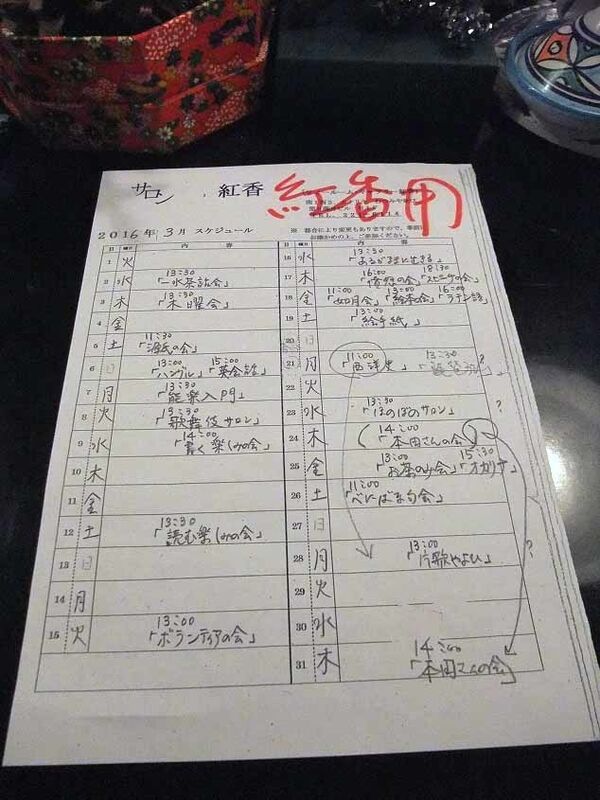 サロン 紅香
紅香用
2016年 3月 スケジュール
※ 都合により変更もありますので、事前に
お確かめの上、ご参加ください。
日 曜日 内容
1 火
2 水 13:30 「一水茶話会」
3 木 13:30 「木曜会」
4 金
5 土 11:30 「源氏の会」
6 日 13:00 「ハングル」 15:00 「英会話」
7 月 13:30 「能楽入門」
8 火 13:30 「歌舞伎サロン」
9 水 14:00 「書く楽しみの会」
10 木
11 金
12 土 13:30 「読む楽しみの会」
13 日
14 月
15 火 13:00 「ボランティアの会」
日 曜日 内容
16 水 13:30 「あるがままに生きる」
17 木 16:00 18:30
18 金 11:00 「如月会」 13:00 「絵本の会」 16:00 「ラテン語」
19 土 13:00 「絵手紙」
20 日
21 月 11:00 「西洋史」 13:30 ?
22 火
23 水 13:30 「ほのぼのサロン」 ?
24 木 (14:00 「本田さんの会」)
25 金 13:00 「お茶のみ会」 15:30 「オカリナ」
26 土 11:00 「べにばな句会」
27 日
28 月 13:00 「片歌やよひ」 ?
29 火
30 水
31 木 14:00 「本田さんの会」